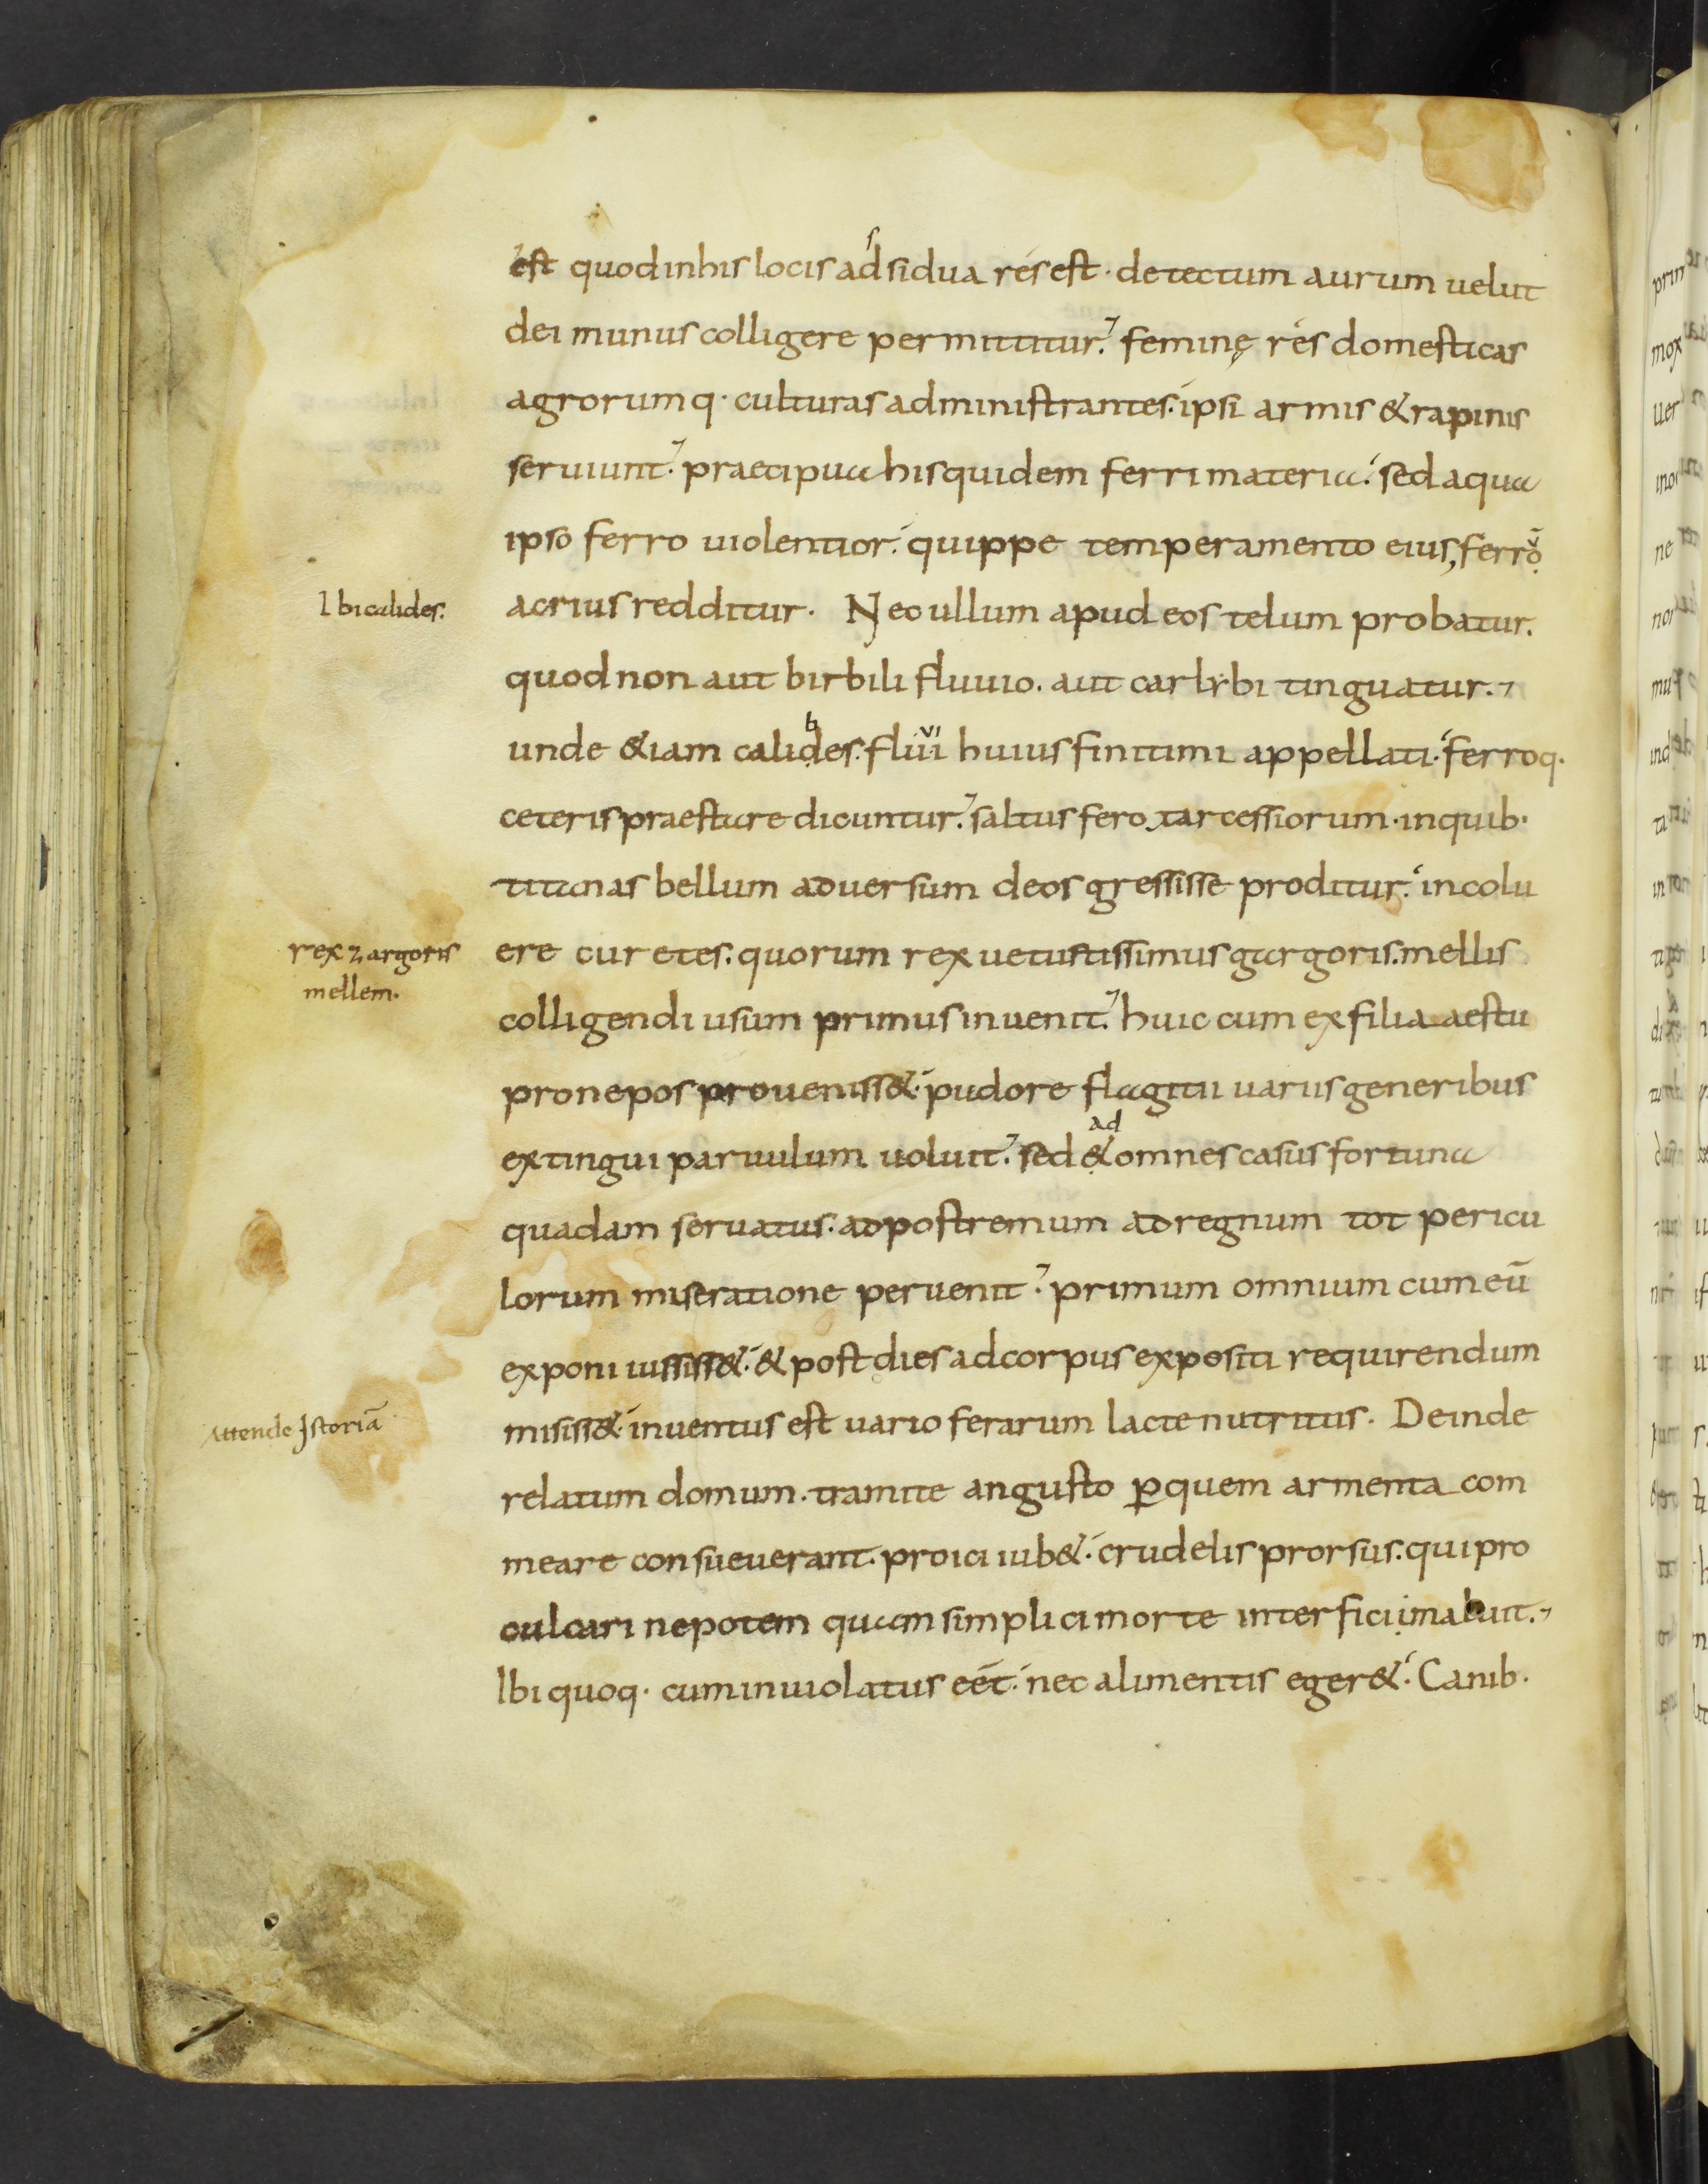 est quod in his locis adsidua res est · detectum aurum uelut
dei munus colligere permittitur. feminę res domesticas
agrorumq· culturas administrantes. ipsi armis & rapinis
seruiunt. praecipua his quidem ferri materia. sed aqua
ipso ferro uiolentior. quippe temperamento eius, ferro
Ibicalides.
acrius redditur. Nec ullum apud eos telum probatur.
quod non aut birbili fluuio. aut carlybi tinguatur.
b
unde &iam calides. fluui huius finitimi appellati. ferroq·
ceteris praestare dicuntur. saltus fero tartessiorum. inquib·
titanas bellum aduersum deos gressisse proditur. incolu
rex argoris
mellem.
ere curetes. quorum rex uetustissimus gargoris. mellis
colligendi usum primus inuenit. huic cum ex filia aestu
pronepos proueniss&. pudore flagitii uariis generibus
ad
extingui paruulum uoluit. sed & omnes casus fortuna
quadam seruatus. ad postremum ad regnum tot pericu
lorum miseratione peruenit. primum omnium cum eū
exponi iussiss&. & post dies ad corpus expositi requirendum
Attende Istoriā
misiss&. inuentus est uario ferarum lacte nutritus. Deinde
relatum domum. tramite angusto ꝑquem armenta com
meare consueuerant. proici iub&. crudelis prorsus. qui pro
culcari nepotem quam simplici morte interfici maluit.
Ibi quoq· cum inuiolatus eēt. nec alimentis eger&. Canib·